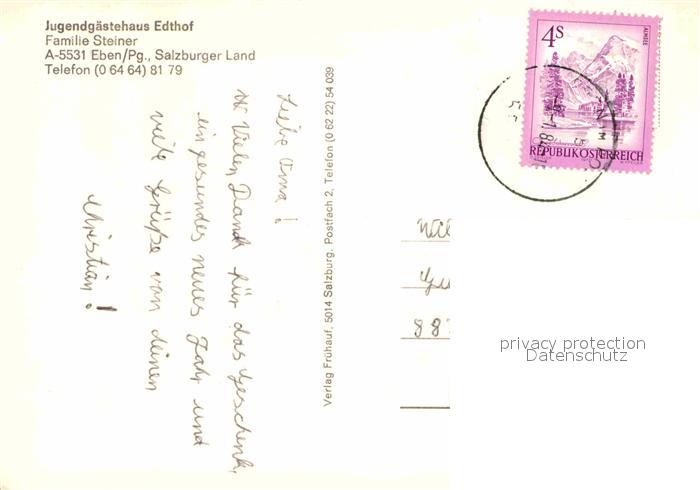 Jugendgästehaus Edthof
Familie Steiner
A-5531 Eben/Pg., Salzburger Land
Telefon (0 64 64) 81 79
Liebe Oma!
Vielen Dank für das Geschenk,
ein gesundes neues Jahr und
viele Grüße von deinem
Christian!
Verlag Frühauf, 5014 Salzburg, Postfach 2, Telefon (0 62 22) 54 039
4S
ALMSEE
REPUBLIK ÖSTERREICH
privacy protection
Datenschutz